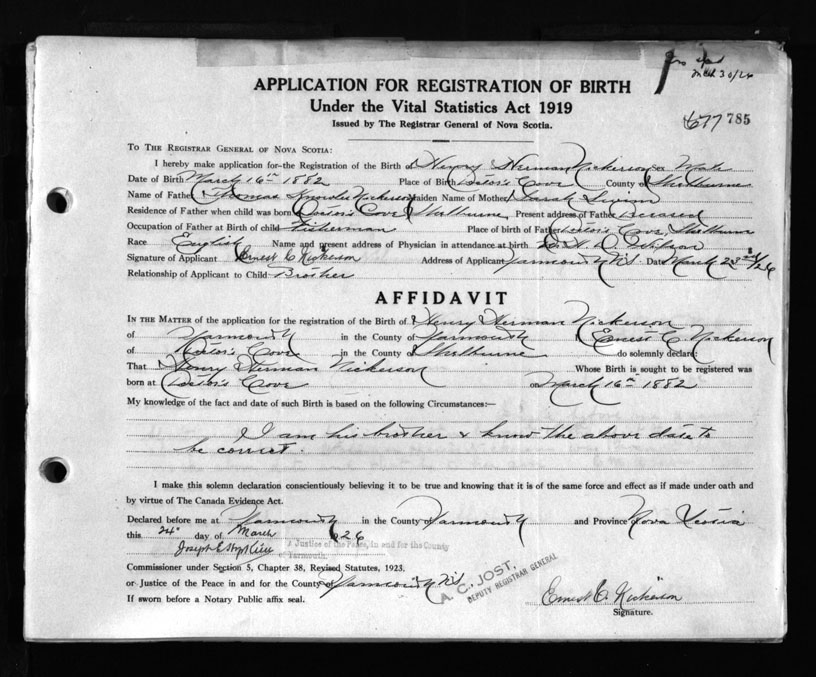 Mch 30/26
APPLICATION FOR REGISTRATION OF BIRTH
Under the Vital Statistics Act 1919
Issued by The Registrar General of Nova Scotia.
677 785
TO THE REGISTRAR GENERAL OF NOVA SCOTIA:
I hereby make application for the Registration of the Birth of Henry Herman Nickerson Male
Date of Birth March 16th 1882 Place of Birth Doctor's Cove County of Shelburne
Name of Father Thomas Knowles Nickerson Maiden Name of Mother Sarah
Residence of Father when child was born Doctor's Cove, Shelburne Present address of Father Deceased
Occupation of Father at Birth of child Fisherman Place of birth of Father Doctor's Cove, Shelburne
Race English Name and present address of Physician in attendance at birth Dr.
Signature of Applicant Ernest C Nickerson Address of Applicant Yarmouth N.S. Date March 23rd/26
Relationship of Applicant to Child Brother
AFFIDAVIT
IN THE MATTER of the application for the registration of the Birth of Henry Herman Nickerson
of Yarmouth in the County of Yarmouth I Ernest C. Nickerson
of Doctor's Cove in the County of Shelburne do solemnly declare:
That Henry Herman Nickerson Whose Birth is sought to be registered was
born at Doctor's Cove on March 16th 1882
My knowledge of the fact and date of such Birth is based on the following Circumstances:—
I am his brother & know the above date to
be correct.
I make this solemn declaration conscientiously believing it to be true and knowing that it is of the same force and effect as if made under oath and
by virtue of The Canada Evidence Act.
Declared before me at Yarmouth in the County of Yarmouth and Province Nova Scotia
this 24" day of March 1926
Joseph E A Justice of the Peace, in and for the County
of Yarmouth.
Commissioner under Section 5, Chapter 38, Revised Statutes, 1923.
or Justice of the Peace in and for the County of Yarmouth N.S.
A. C. JOST,
DEPUTY REGISTRAR GENERAL
If sworn before a Notary Public affix seal.
Ernest C. Nickerson
Signature.